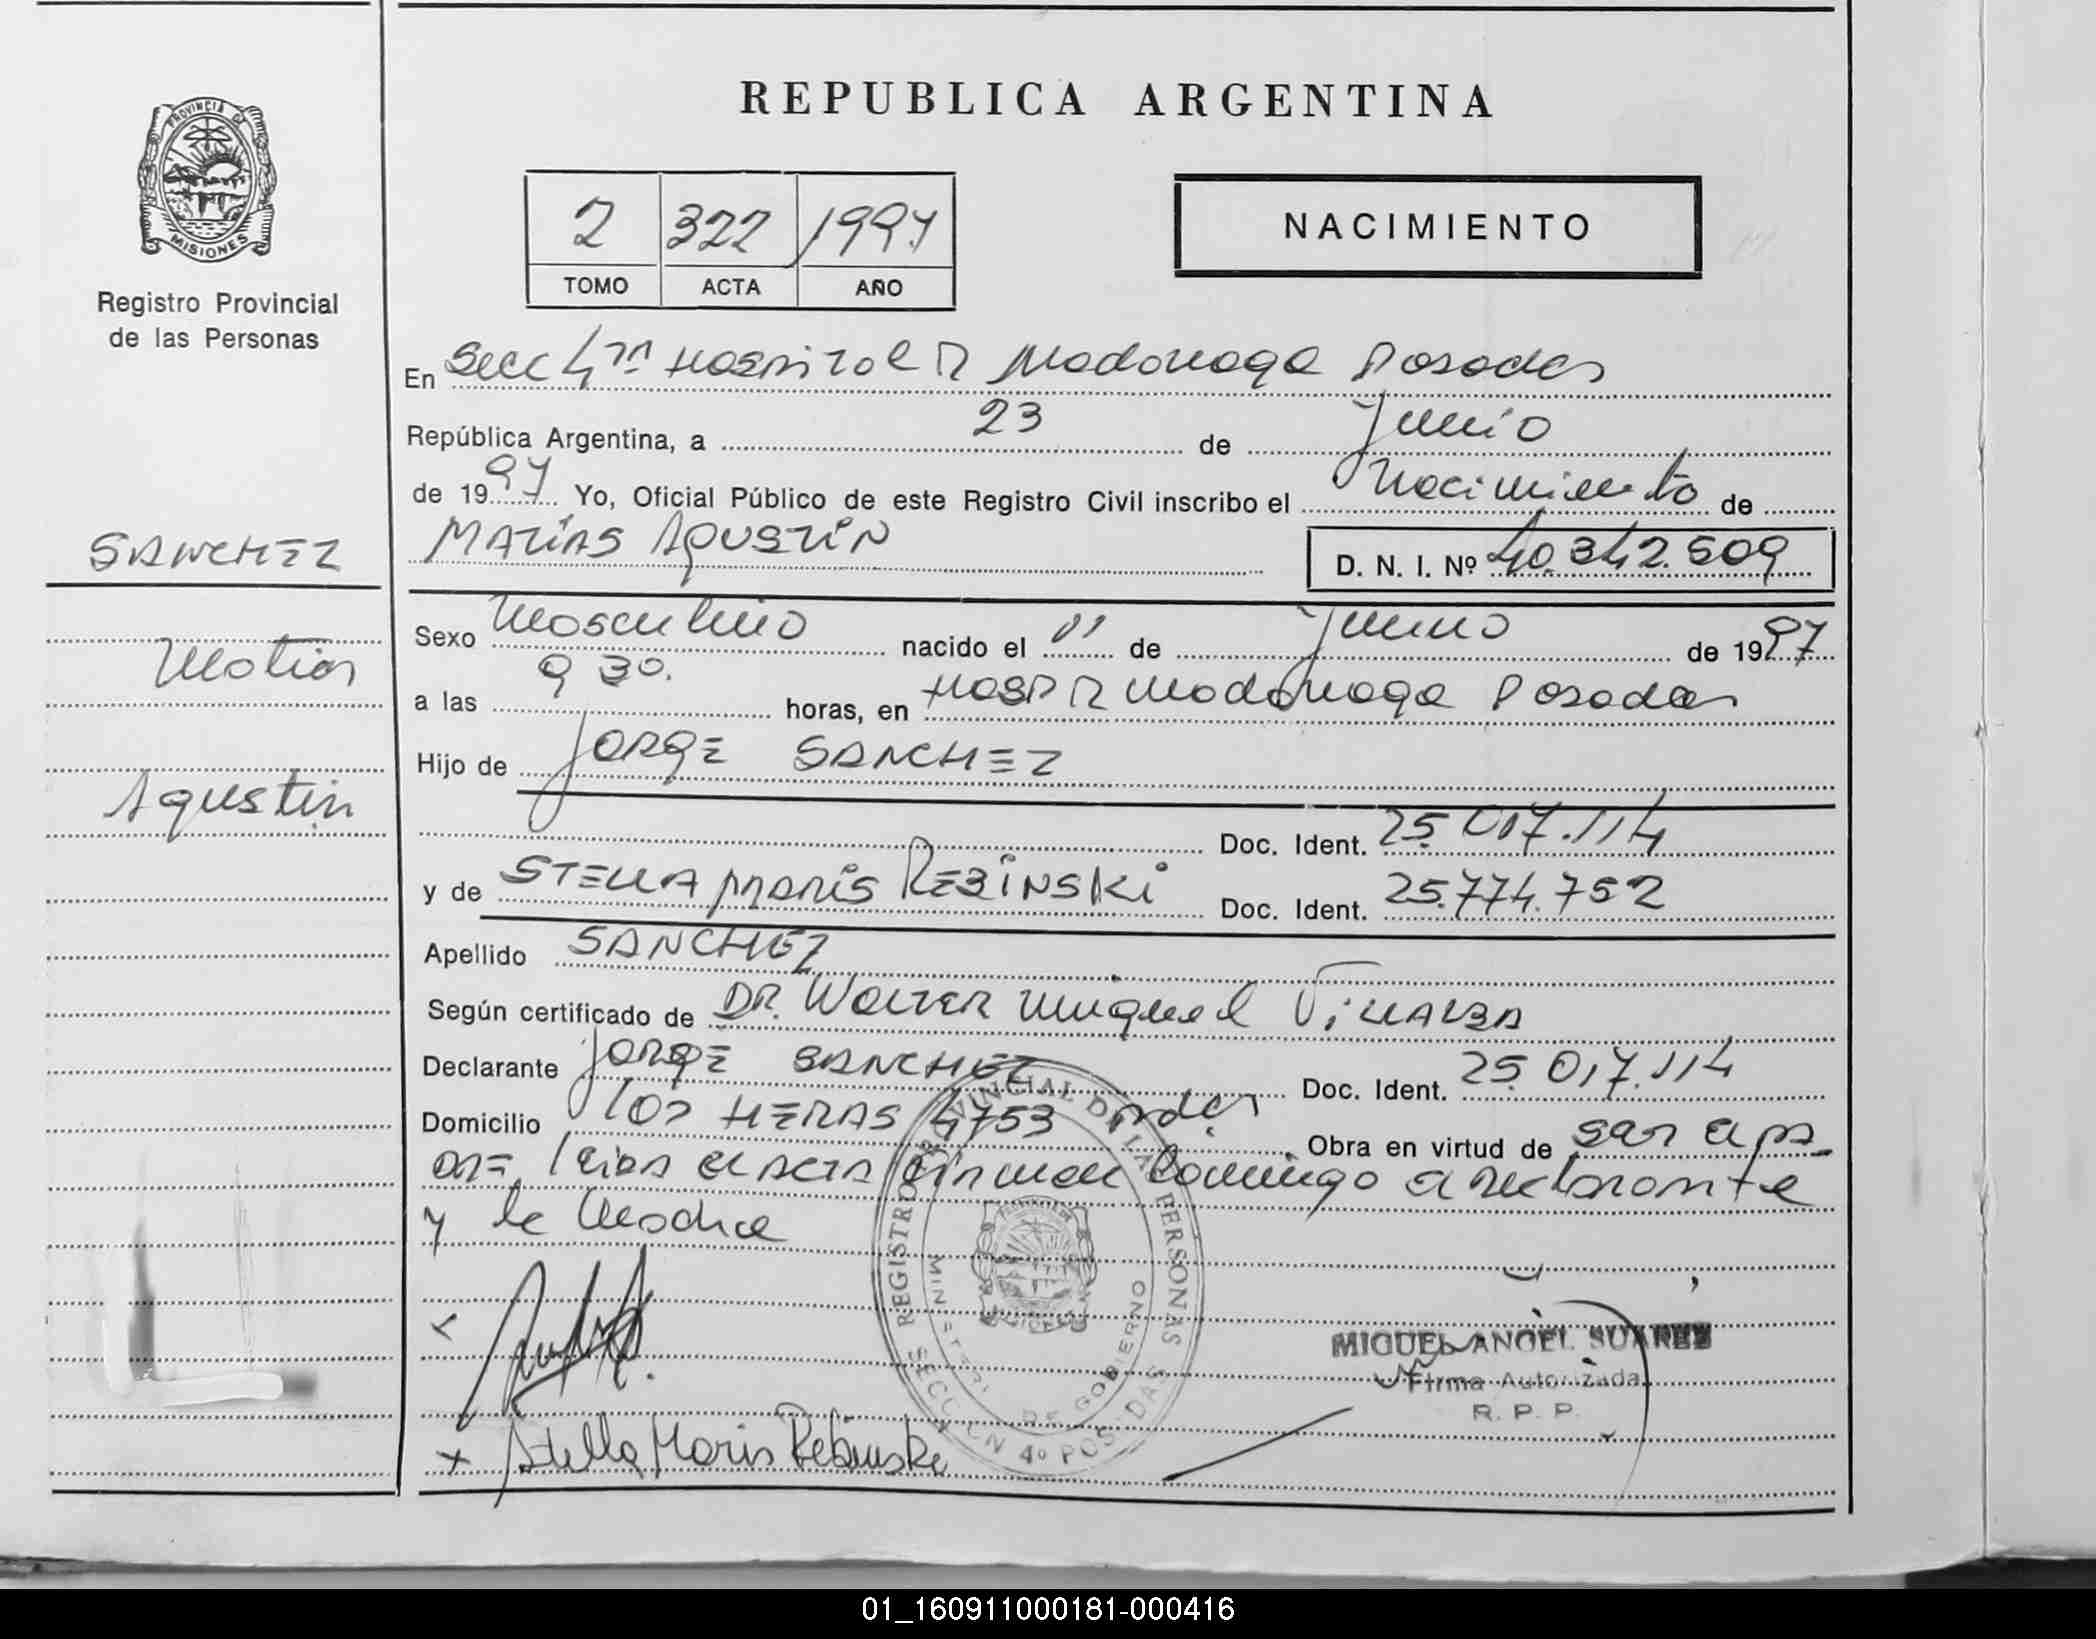 PROVINCIA DE
MISIONES
Registro Provincial
de las Personas
SANCHEZ
Matias
Agustin
REPUBLICA ARGENTINA
2 322 1997
TOMO ACTA AÑO
NACIMIENTO
En Secc 4ta Hospital R Madariaga Posadas
República Argentina, a 23 de Junio
de 1997 Yo, Oficial Público de este Registro Civil inscribo el Nacimiento de
MATIAS AGUSTIN D. N. I. Nº 40.342.509
Sexo Masculino nacido el 11 de Junio de 1997
a las 9 30. horas, en HOSP R Madariaga Posadas
Hijo de JORGE SANCHEZ
Doc. Ident. 25.017.114
y de STELLA MARIS REBINSKI Doc. Ident. 25.774.752
Apellido SANCHEZ
Según certificado de DR. Walter Miguel VILLALBA
Declarante JORGE SANCHEZ Doc. Ident. 25.017.114
Domicilio Las HERAS 4753 Pdas. Obra en virtud de ser el pa-
dre leida el acta firman conmigo el declarante
y la Madre
Stella Maris Rebinski
REGISTRO PROVINCIAL DE LAS PERSONAS
MINISTERIO DE GOBIERNO
SECCION 4º POSADAS
MIGUEL ANGEL SUAREZ
Firma Autorizada
R. P. P.
01_160911000181-000416